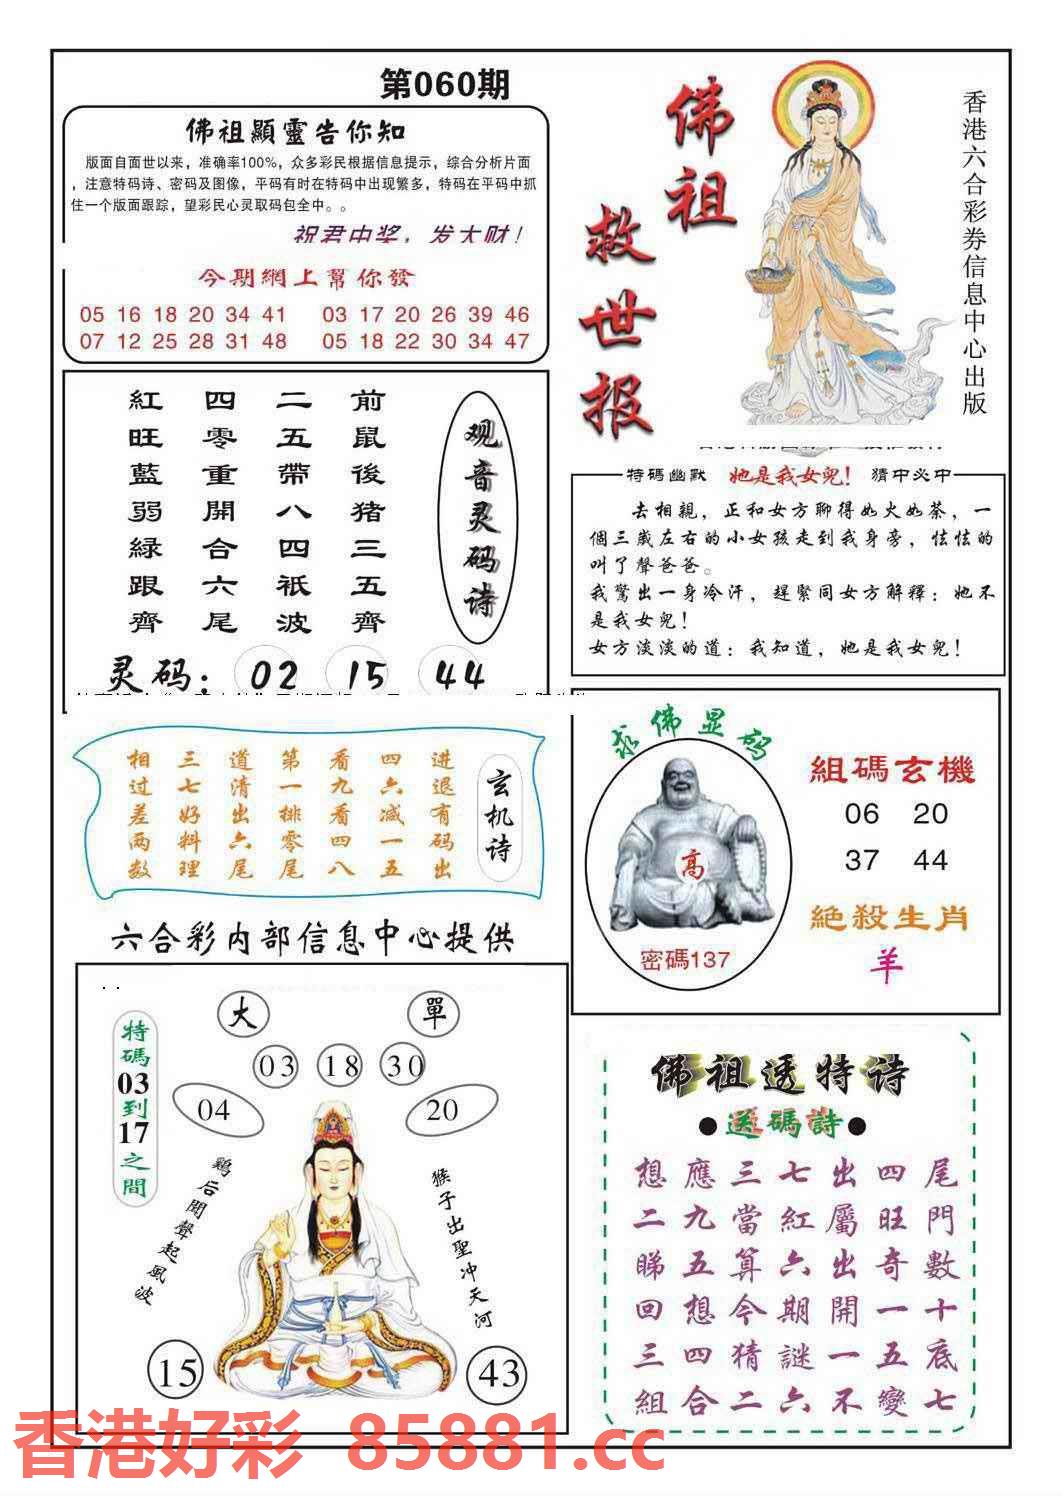 第060期
佛祖顯靈告你知
版面自面世以来，准确率100%，众多彩民根据信息提示，综合分析片面
，注意特码诗、密码及图像，平码有时在特码中出现繁多，特码在平码中抓
住一个版面跟踪，望彩民心灵取码包全中。。
祝君中奖，发大财！
今期網上幫你發
05 16 18 20 34 41 03 17 20 26 39 46
07 12 25 28 31 48 05 18 22 30 34 47
佛祖
救世报
香港六合彩券信息中心出版
前鼠後猪三五齊
二五帶八四祇波
四零重開合六尾
紅旺藍弱緑跟齊
观音灵码诗
灵码：02 15 44
特码幽默 她是我女兒！ 猜中必中
去相親，正和女方聊得如火如荼，一
個三歲左右的小女孩走到我身旁，怯怯的
叫了聲爸爸。
我驚出一身冷汗，趕緊同女方解釋：她不
是我女兒！
女方淡淡的道：我知道，她是我女兒！
玄机诗
进退有码出
四六减一五
看九看四八
第一排零尾
道清出六尾
三七好料理
相过差两数
六合彩内部信息中心提供
求佛显码
高
密碼137
組碼玄機
06 20
37 44
絕殺生肖
羊
大 單
03 18 30
04 20
特碼03到17之間
鷄后聞聲起風波
猴子出聖冲天河
15 43
佛祖透特诗
●送碼詩●
想應三七出四尾
二九當紅屬旺門
睇五算六出奇數
回想今期開一十
三四猜謎一五底
組合二六不變七
香港好彩 85881.cc